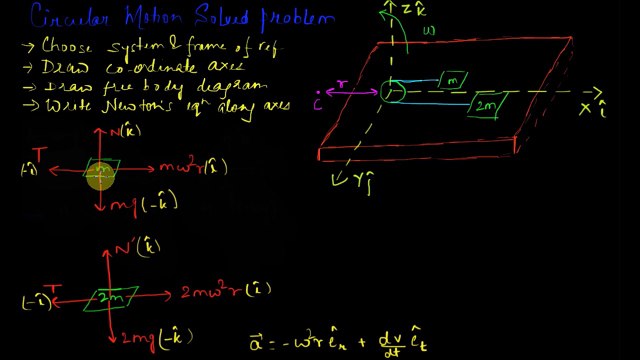 Circular Motion Solved problem
→ Choose system & frame of ref.
→ Draw co-ordinate axes
→ Draw free body diagram
→ Write Newton's eqⁿ along axes
Z k̂
ω
m
2m
r
C
X î
Y ĵ
N(k̂)
T
(-î)
m
mω²r(î)
mg(-k̂)
N'(k̂)
T
(-î)
2m
2mω²r(î)
2mg(-k̂)
a⃗ = -ω²r ê_r + dv/dt ê_t